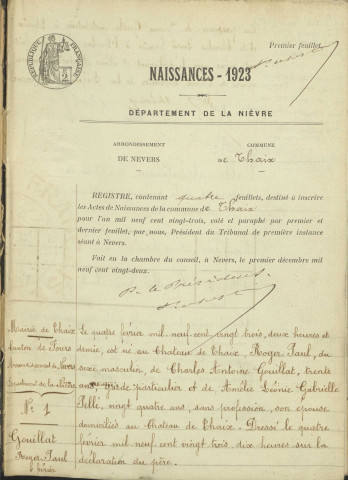 Premier feuillet.
RÉPUBLIQUE FRANÇAISE
NAISSANCES - 1923
DÉPARTEMENT DE LA NIÈVRE
ARRONDISSEMENT
DE NEVERS
COMMUNE
DE Thaix
REGISTRE, contenant quatre feuillets, destiné à inscrire
les Actes de Naissances de la commune de Thaix
pour l'an mil neuf cent vingt-trois, coté et paraphé par premier et
dernier feuillet, par nous, Président du Tribunal de première instance
séant à Nevers.
Fait en la chambre du conseil, à Nevers, le premier décembre mil
neuf cent vingt-deux.
P. le Président
Mairie de Thaix
Canton de Fours
Arrondissement de Nevers
Département de la Nièvre
N° 1
Gouillat
Roger Paul
4 février
Le quatre février mil neuf cent vingt trois, deux heures et
demie, est né au Chateau de Thaix, Roger Paul, du
sexe masculin, de Charles Antoine Gouillat, trente
ans, garde particulier et de Amélie Léonie Gabrielle
Pelle, vingt quatre ans, sans profession, son épouse
domiciliés au Chateau de Thaix. Dressé le quatre
février mil neuf cent vingt trois, dix heures sur la
déclaration du père.